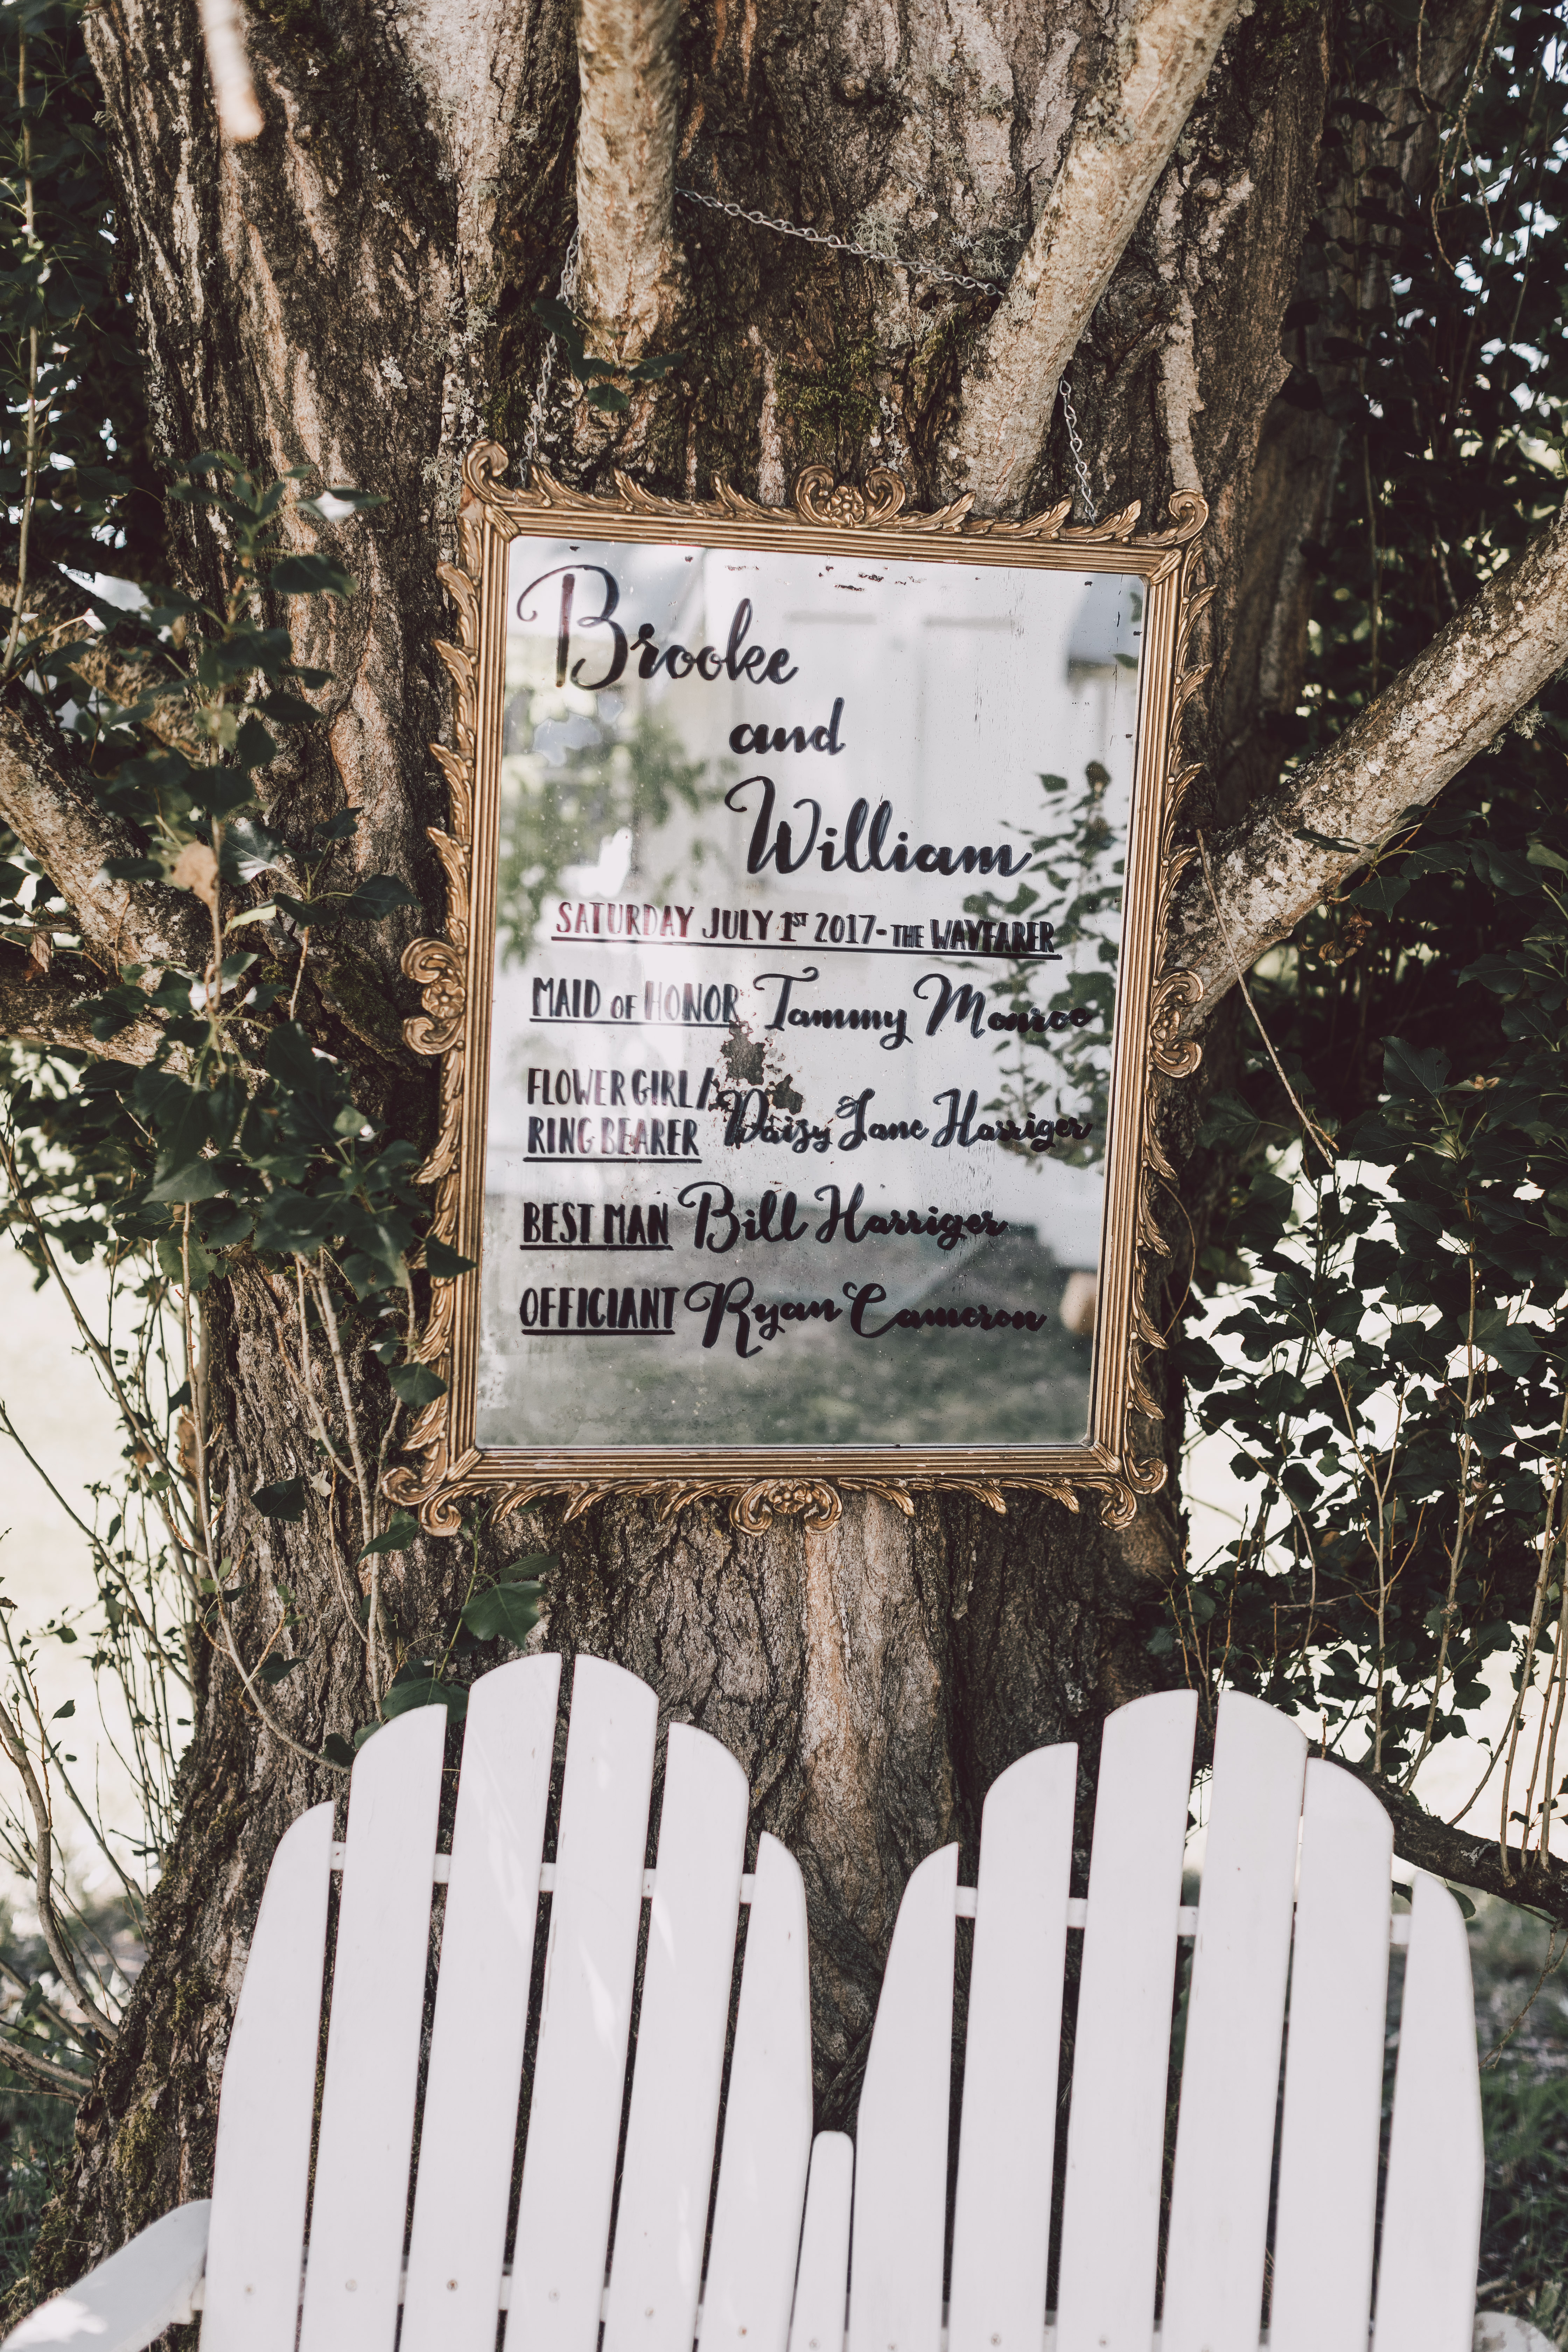 Brooke
and
William
SATURDAY JULY 1ST 2017 - THE WAYFARER
MAID OF HONOR Tammy Monroe
FLOWER GIRL/
RING BEARER Daisy Jane Harriger
BEST MAN Bill Harriger
OFFICIANT Ryan Cameron